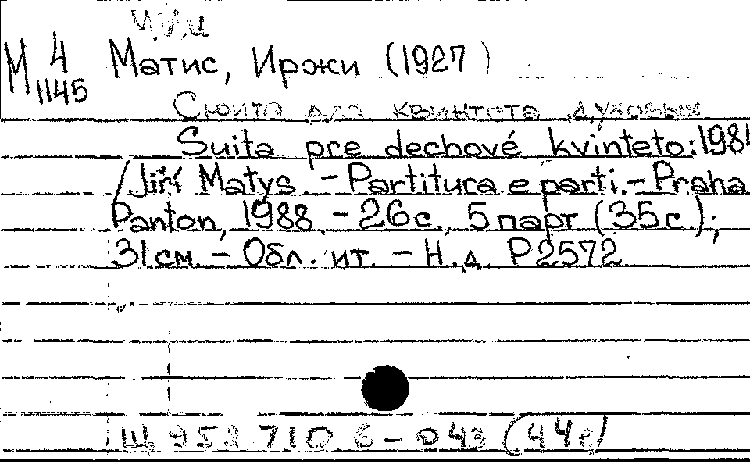 ч.и.и
М 4 Матис, Иржи (1927 )
1145
Сюита для квинтета духовых
Suita pre dechové kvinteto: 1981
/ Jiří Matys. - Partitura e parti. - Praha
Panton, 1988. - 26 с., 5 парт (35 с.);
31 см. - Обл. ит. - Н.д. P2572